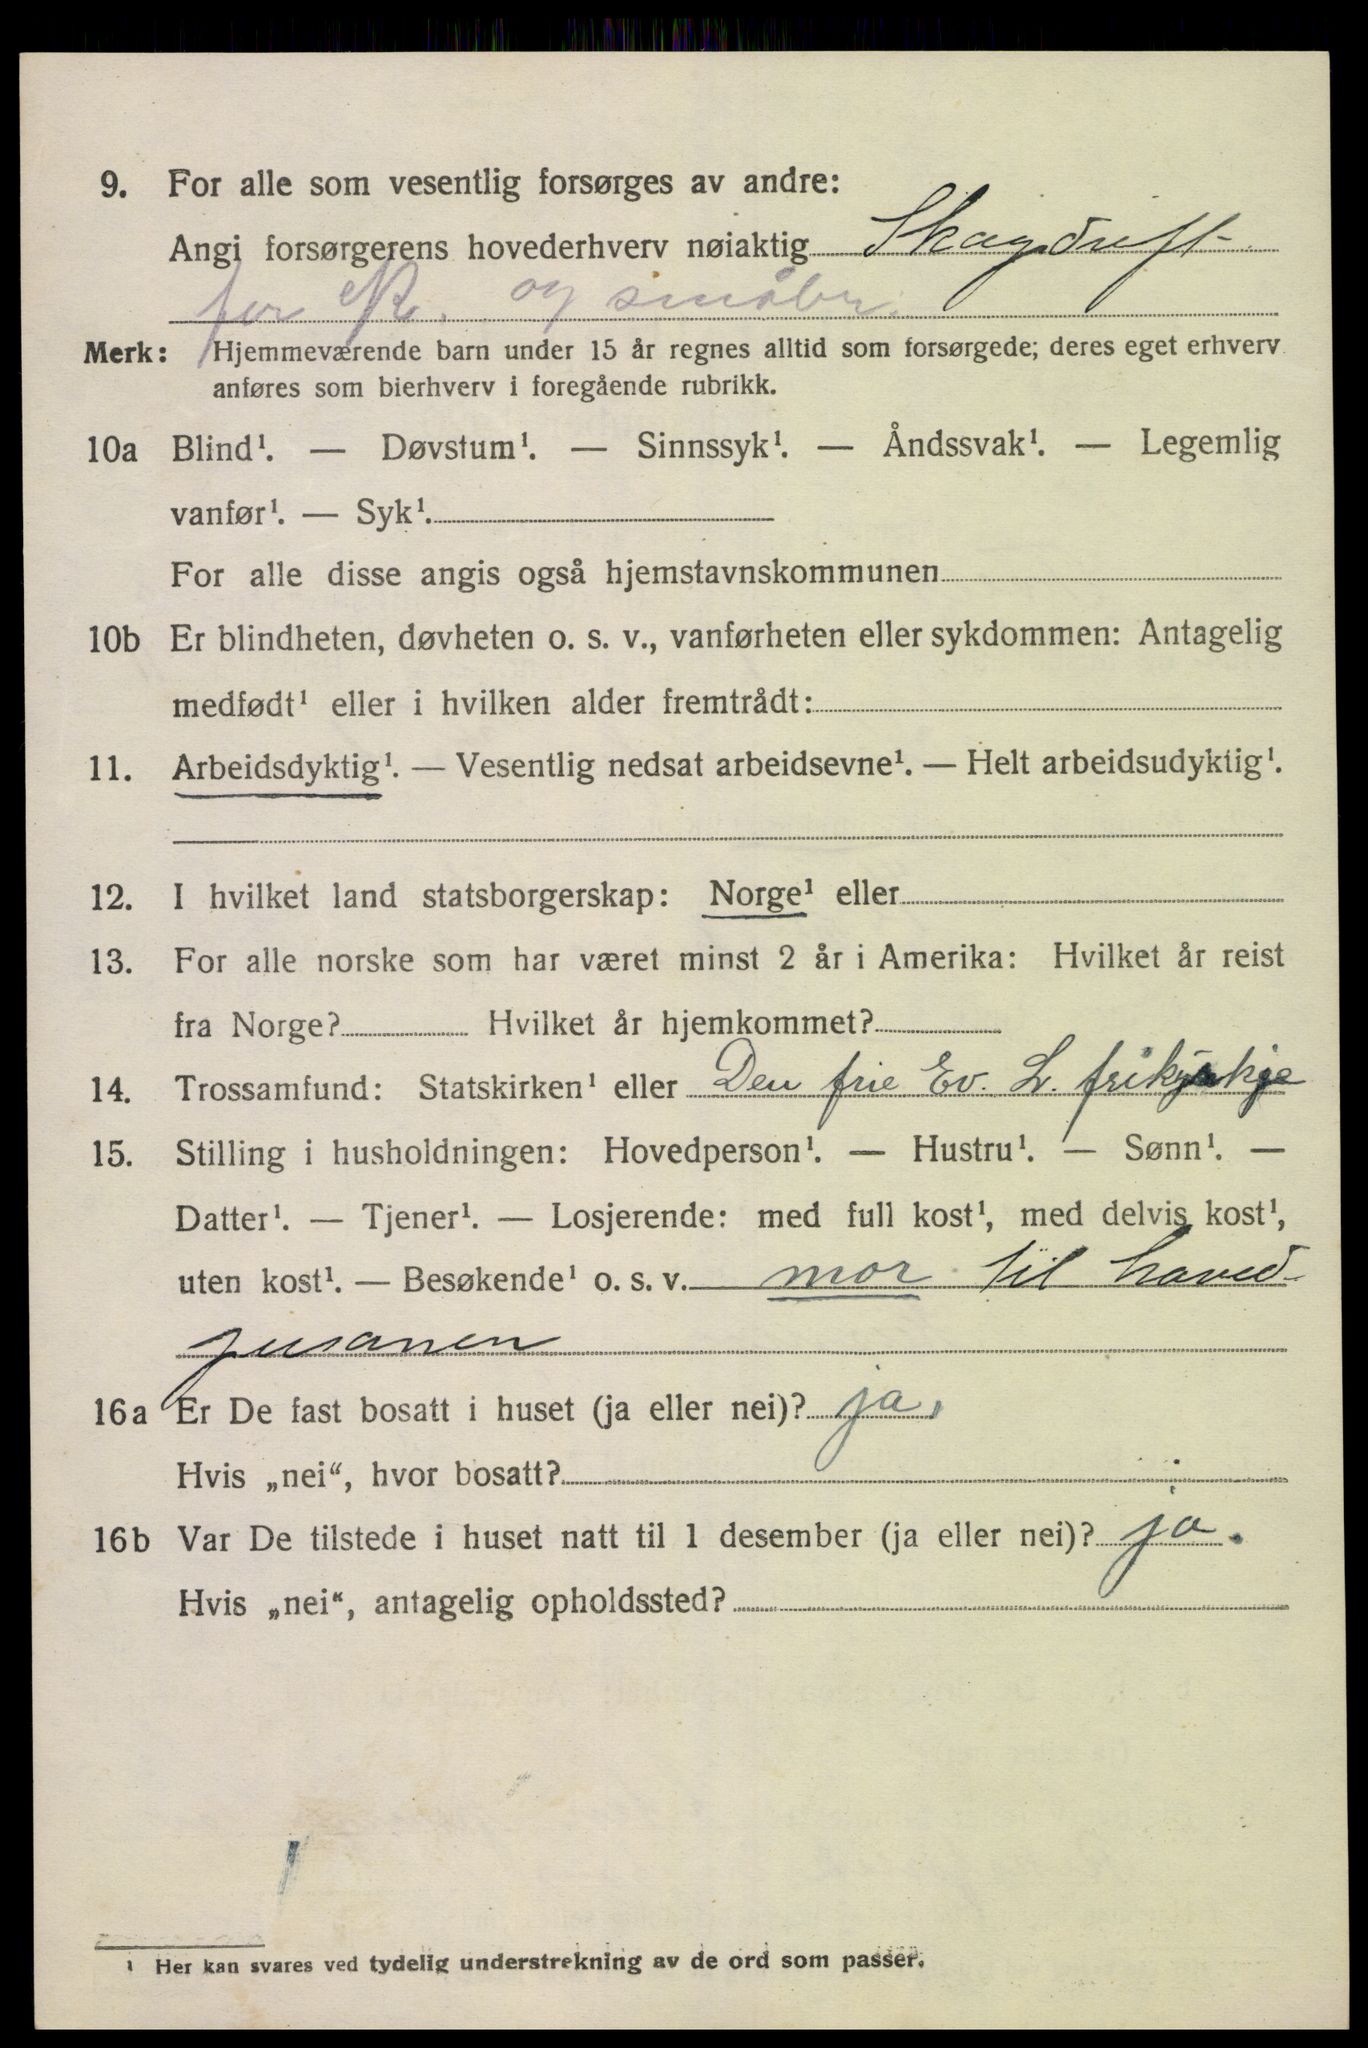 9. For alle som vesentlig forsørges av andre:
Angi forsørgerens hovederhverv nøiaktig Skogsdrift
for R. og småbr.
Merk: Hjemmeværende barn under 15 år regnes alltid som forsørgede; deres eget erhverv
anføres som bierhverv i foregående rubrikk.
10a Blind¹. — Døvstum¹. — Sinnssyk¹. — Åndssvak¹. — Legemlig
vanfør¹. — Syk¹.
For alle disse angis også hjemstavnskommunen
10b Er blindheten, døvheten o. s. v., vanførheten eller sykdommen: Antagelig
medfødt¹ eller i hvilken alder fremtrådt:
11. Arbeidsdyktig¹. — Vesentlig nedsat arbeidsevne¹. — Helt arbeidsudyktig¹.
12. I hvilket land statsborgerskap: Norge¹ eller
13. For alle norske som har været minst 2 år i Amerika: Hvilket år reist
fra Norge? Hvilket år hjemkommet?
14. Trossamfund: Statskirken¹ eller Den frie Ev. L. frikyrkje
15. Stilling i husholdningen: Hovedperson¹. — Hustru¹. — Sønn¹. —
Datter¹. — Tjener¹. — Losjerende: med full kost¹, med delvis kost¹,
uten kost¹. — Besøkende¹ o. s. v. mor til hoved-
personen
16a Er De fast bosatt i huset (ja eller nei)? ja.
Hvis „nei“, hvor bosatt?
16b Var De tilstede i huset natt til 1 desember (ja eller nei)? ja.
Hvis „nei“, antagelig opholdssted?
¹ Her kan svares ved tydelig understrekning av de ord som passer.